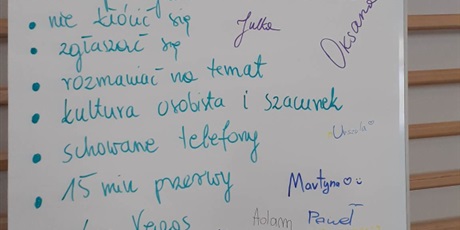 • nie kłócić się Julka
Oksana
• zgłaszać się
• rozmawiać na temat
• kultura osobista i szacunek
Urszula
• schowane telefony
• 15 min przerwy Martyna
Vegas Adam Paweł